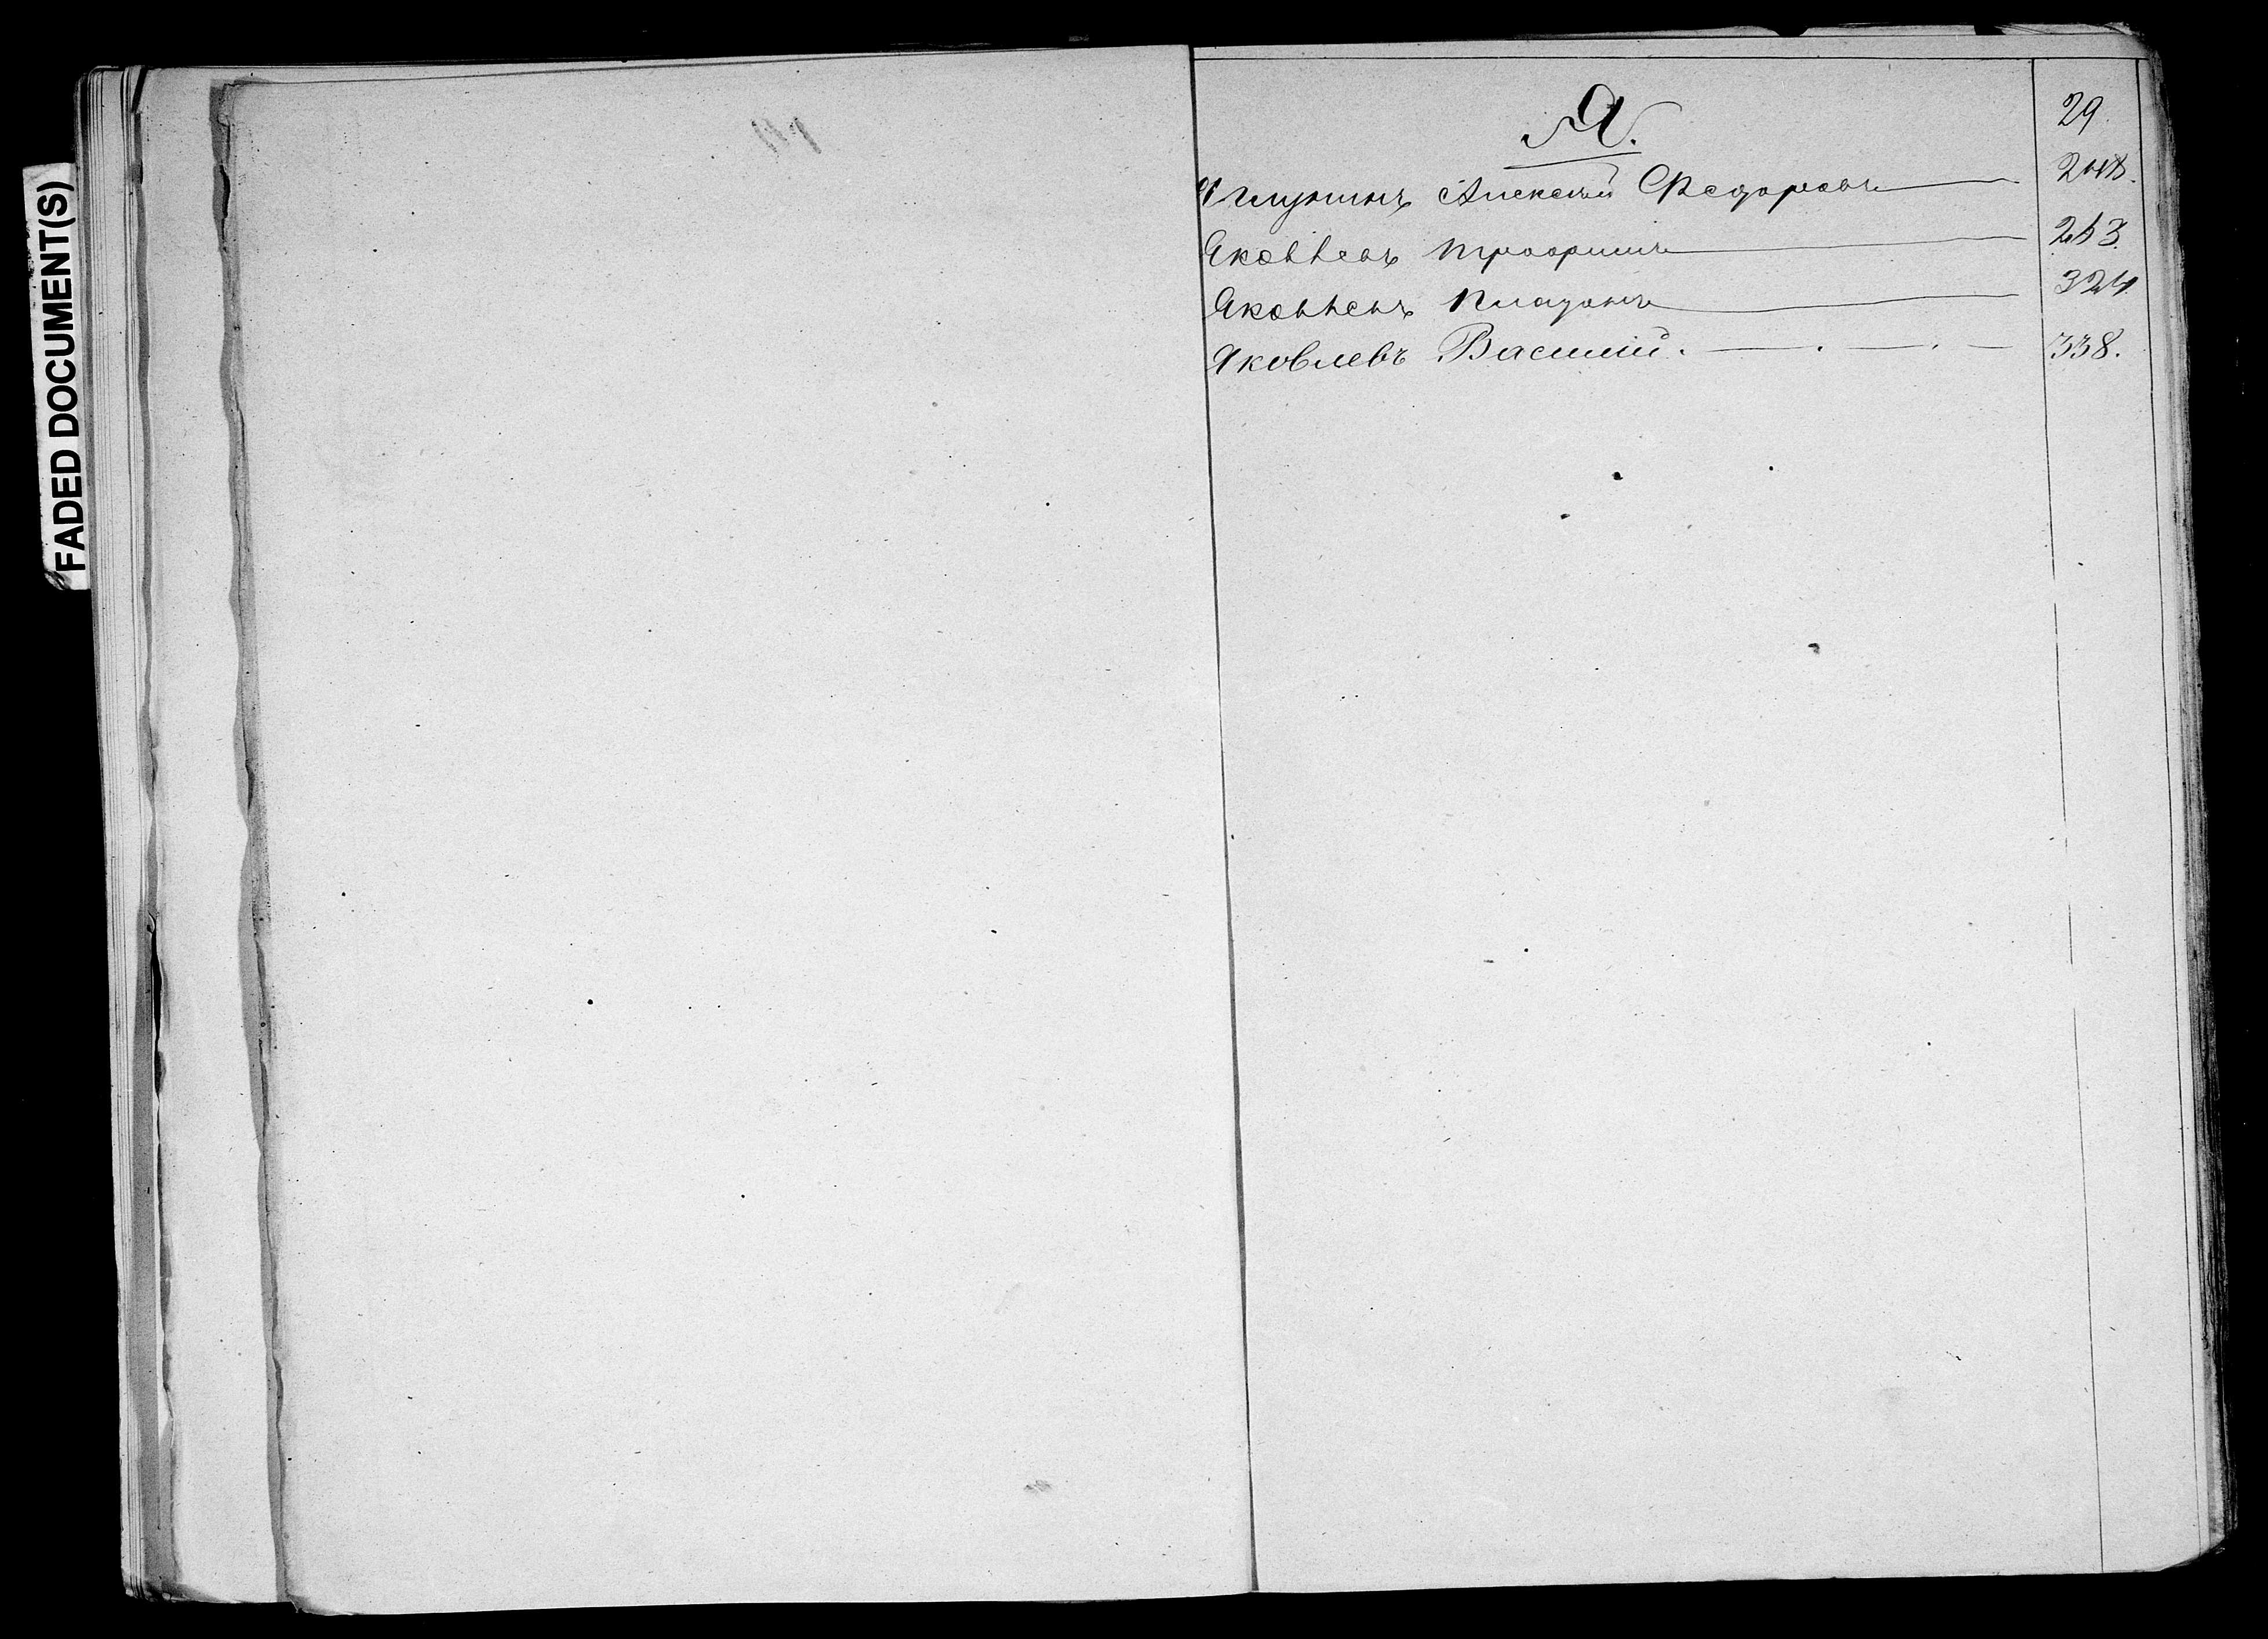 FADED DOCUMENT(S)
Я.
29.
Алексѣй Федоровъ 248.
Яковлевъ Трофимъ 253.
Яковлевъ Платонъ 324.
Яковлевъ Василий. 338.